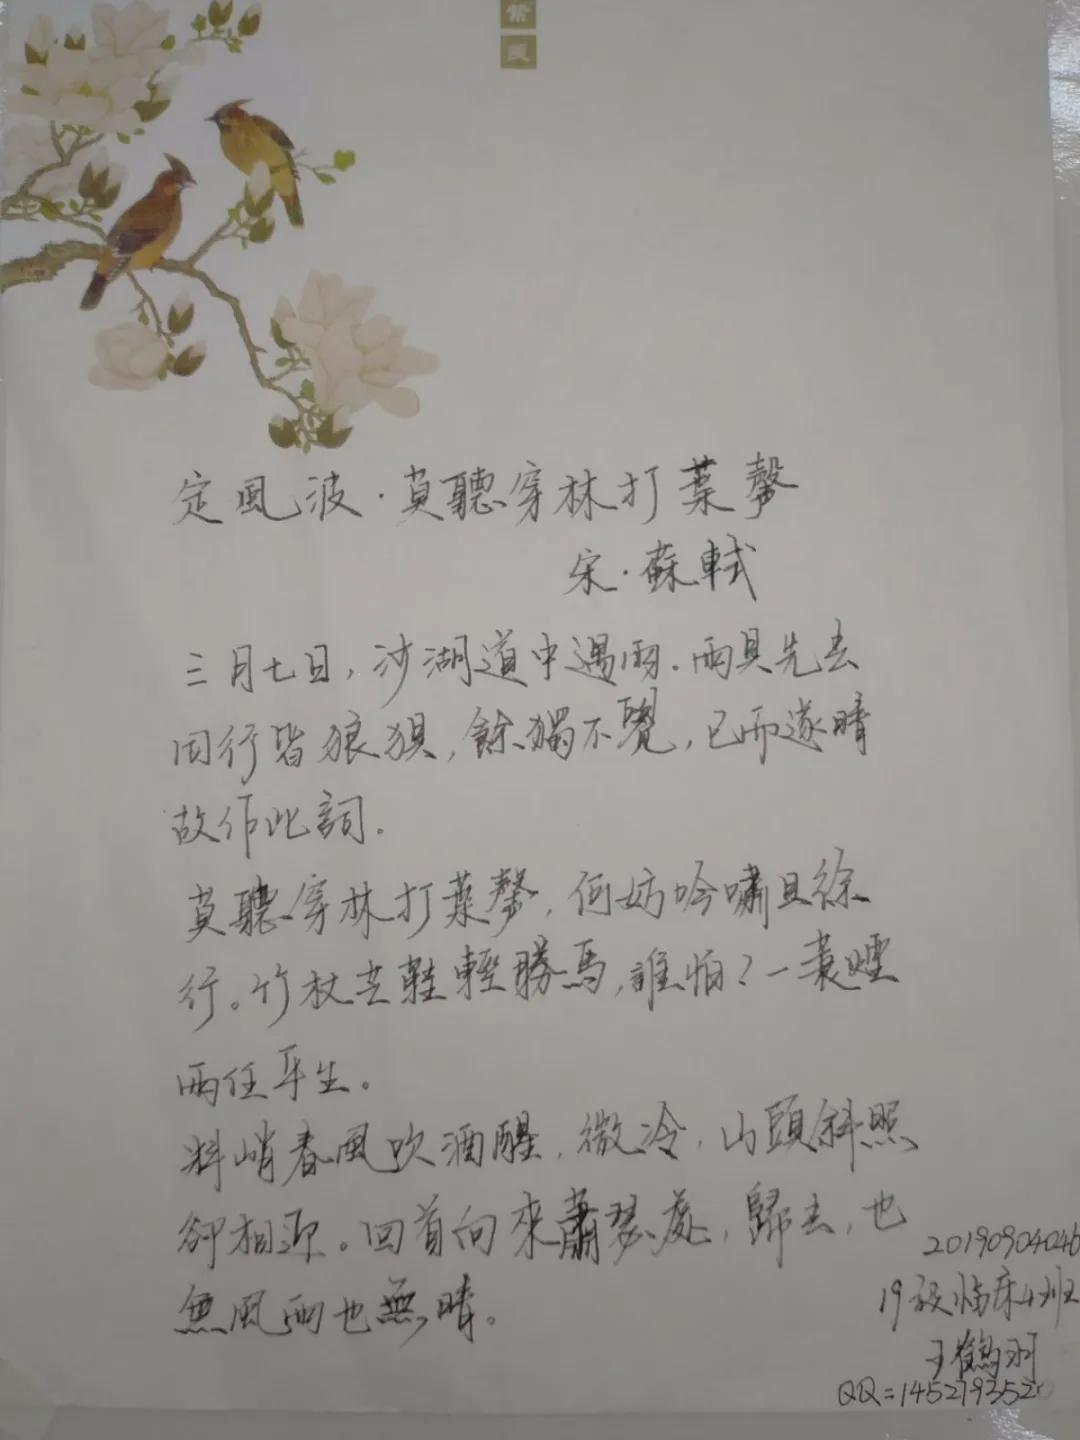 定風波·莫聽穿林打葉聲
宋·蘇軾
三月七日,沙湖道中遇雨.雨具先去
同行皆狼狽,餘獨不覺,已而遂晴
故作此詞.
莫聽穿林打葉聲,何妨吟嘯且徐
行。竹杖芒鞋輕勝馬,誰怕?一蓑煙
雨任平生。
料峭春風吹酒醒,微冷,山頭斜照
卻相迎。回首向來蕭瑟處,歸去,也
無風雨也無晴。
20190904046
19級临床4班
王鶴羽
QQ=1452793520